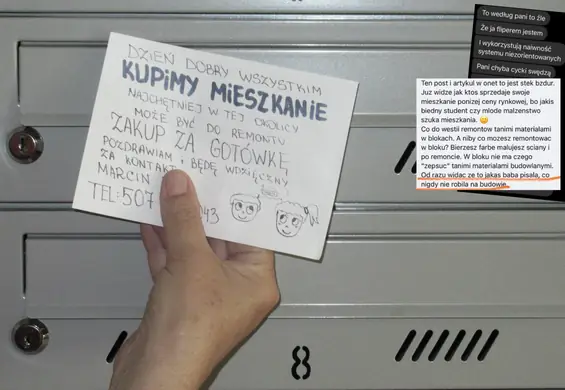 DZIEŃ DOBRY WSZYSTKIM
KUPIMY MIESZKANIE
NAJCHĘTNIEJ W TEJ OKOLICY
MOŻE BYĆ DO REMONTU
ZAKUP ZA GOTÓWKĘ
POZDRAWIAM I BĘDĘ WDZIĘCZNY
ZA KONTAKT
MARCIN
TEL: 507 43
8
To według pani to źle
Że ja fliperem jestem
I wykorzystują naiwność
systemu niezorientowanych
Pani chyba cycki swędzą
Ten post i artykul w onet to jest stek bzdur.
Juz widze jak ktos sprzedaje swoje
mieszkanie ponizej ceny rynkowej, bo jakis
biedny student czy mlode malzenstwo
szuka mieszkania. 🙂
Co do westii remontow tanimi materialami
w blokach. A niby co mozesz remontowac
w bloku? Bierzesz farbe malujesz sciany i
po remoncie. W bloku nie ma czego
"zepsuc" tanimi materialami budowlanymi.
Od razu widac ze to jakas baba pisala, co
nigdy nie robila na budowie.